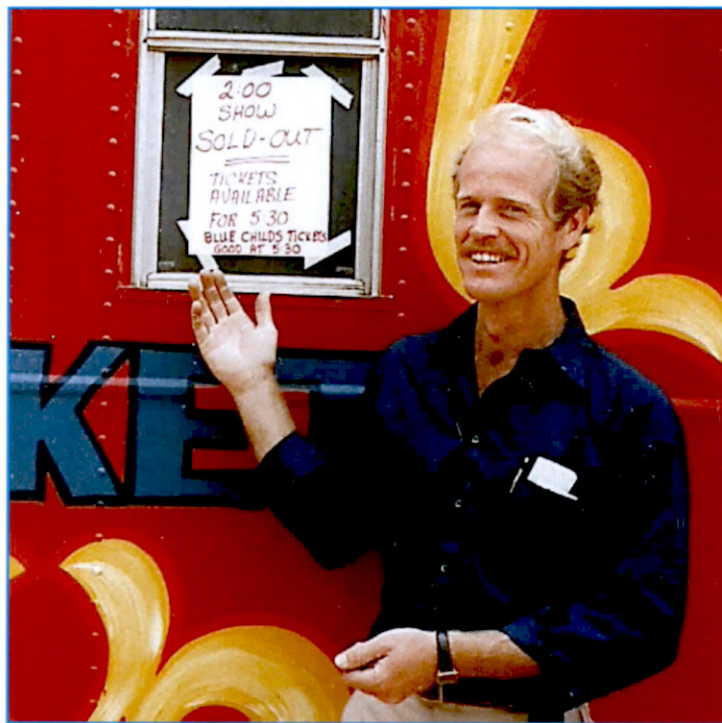 2:00
SHOW
SOLD-OUT
TICKETS
AVAILABLE
FOR 5 30
BLUE CHILDS TICKETS
GOOD AT 5 30
KE